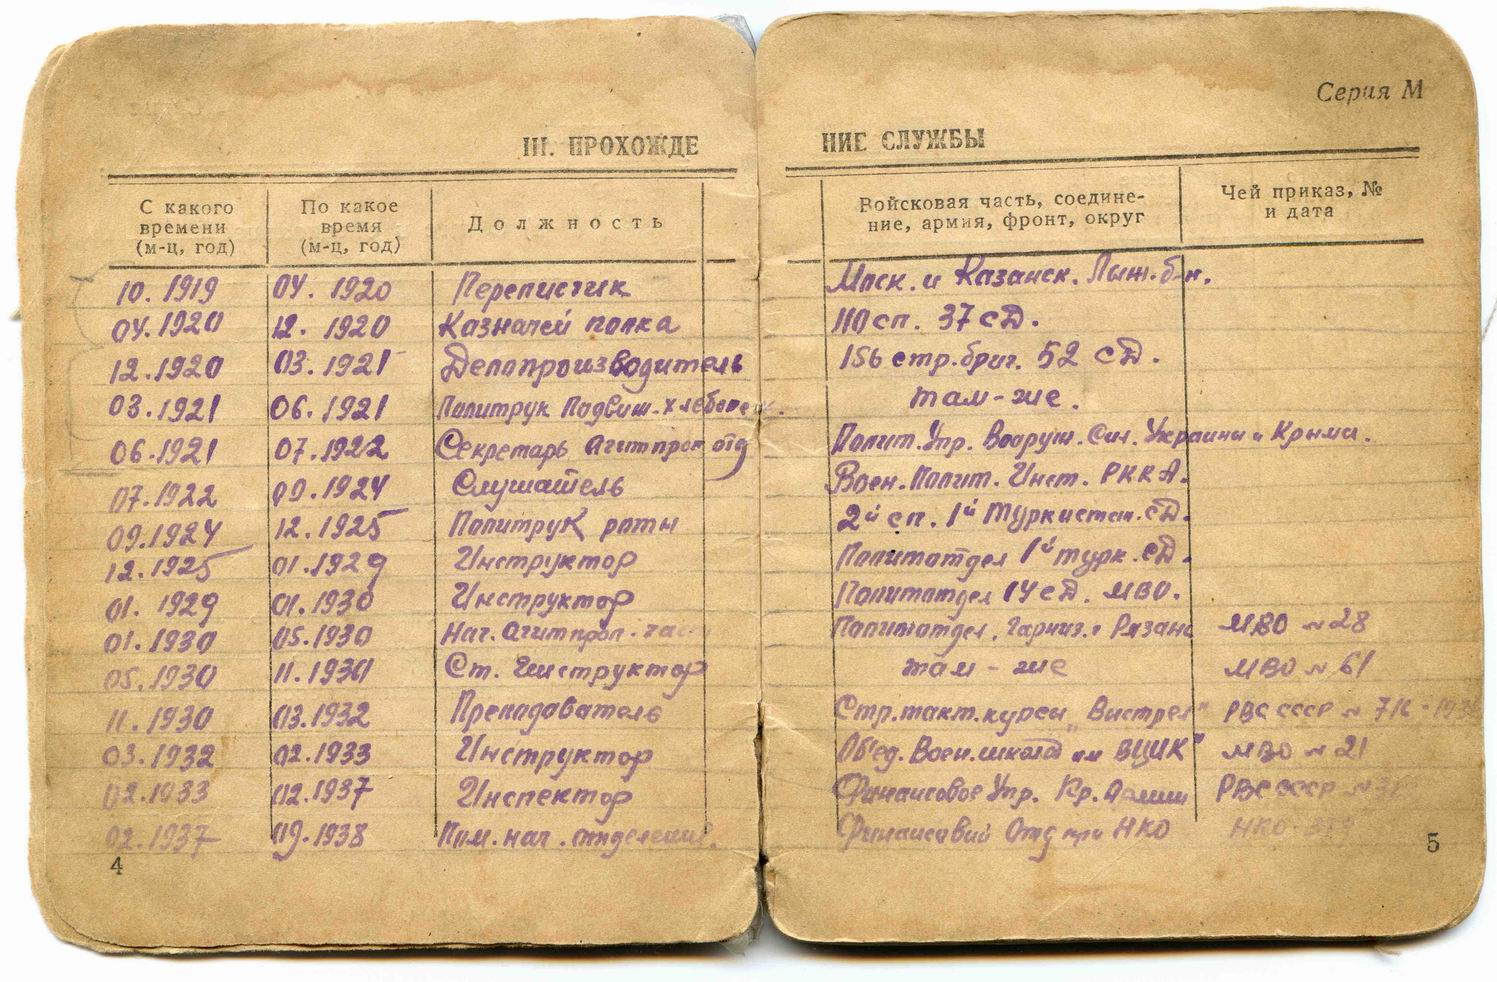 Серия М
III. ПРОХОЖДЕНИЕ СЛУЖБЫ
С какого времени (м-ц, год) По какое время (м-ц, год) Должность Войсковая часть, соединение, армия, фронт, округ Чей приказ, № и дата
10. 1919 04. 1920 Переписчик Моск. и Казанск. Лыж. б-н.
04. 1920 12. 1920 Казначей полка 110 сп. 37 сД.
12. 1920 03. 1921 Делопроизводитель 156 стр. бриг. 52 сД.
03. 1921 06. 1921 Политрук там-же.
06. 1921 07. 1922 Секретарь Агитпроп отд Полит. Упр. Вооруж. Сил. Украины и Крыма.
07. 1922 09. 1924 Слушатель Воен. Полит. Инст. РККА.
09. 1924 12. 1925 Политрук роты 2й сп. 1й Туркистан. сД.
12. 1925 01. 1929 Инструктор Политотдел 1й турк. сД.
01. 1929 01. 1930 Инструктор Политотдел 14 сД. МВО.
01. 1930 05. 1930 Нач. Агитпроп. част Политотдел, Гарниз. г Рязань МВО № 28
05. 1930 11. 1930 Ст. Инструктор там-же МВО № 61
11. 1930 03. 1932 Преподаватель Стр. такт. курсы "Выстрел" РВС СССР №
03. 1932 02. 1933 Инструктор Об'ед. Воен. школа им ВЦИК" МВО № 21
02. 1933 02. 1937 Инспектор Финансовое Упр. Кр. Армии РВС СССР №
02. 1937 09. 1938 Пом. нач. отделения. Финансовый Отд при НКО НКО
4
5